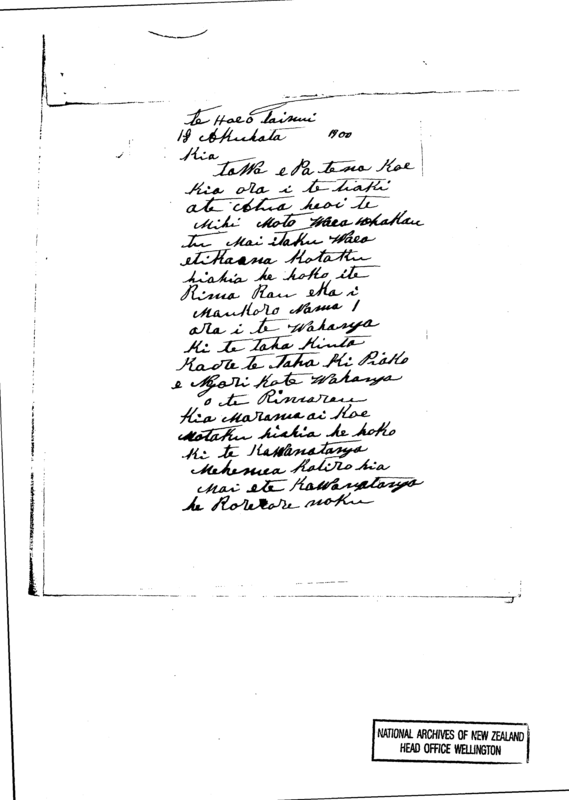 te Hoeo tainui
18 Akuhata 1900
Kia
taWa e Pa tena Koe
Kia ora i te tiaki
ate Atua heoi te
Mihi Moto Waea whakau
tu Mai itaku Waea
etikaana Kotaku
hiahia he hoko ite
Rima Rau eka i
Maukoro Nama 1
ara i te Wahanga
Ki te taha
Kaore te taha Ki Piako
e Ngari Kote Wahanga
o te Rimarau
Kia Marama ai Koe
Motaku hiahia he hoko
Ki te KaWanatanga
Mehemea Katiro hia
Mai ete KaWanatanga
he noku
NATIONAL ARCHIVES OF NEW ZEALAND
HEAD OFFICE WELLINGTON